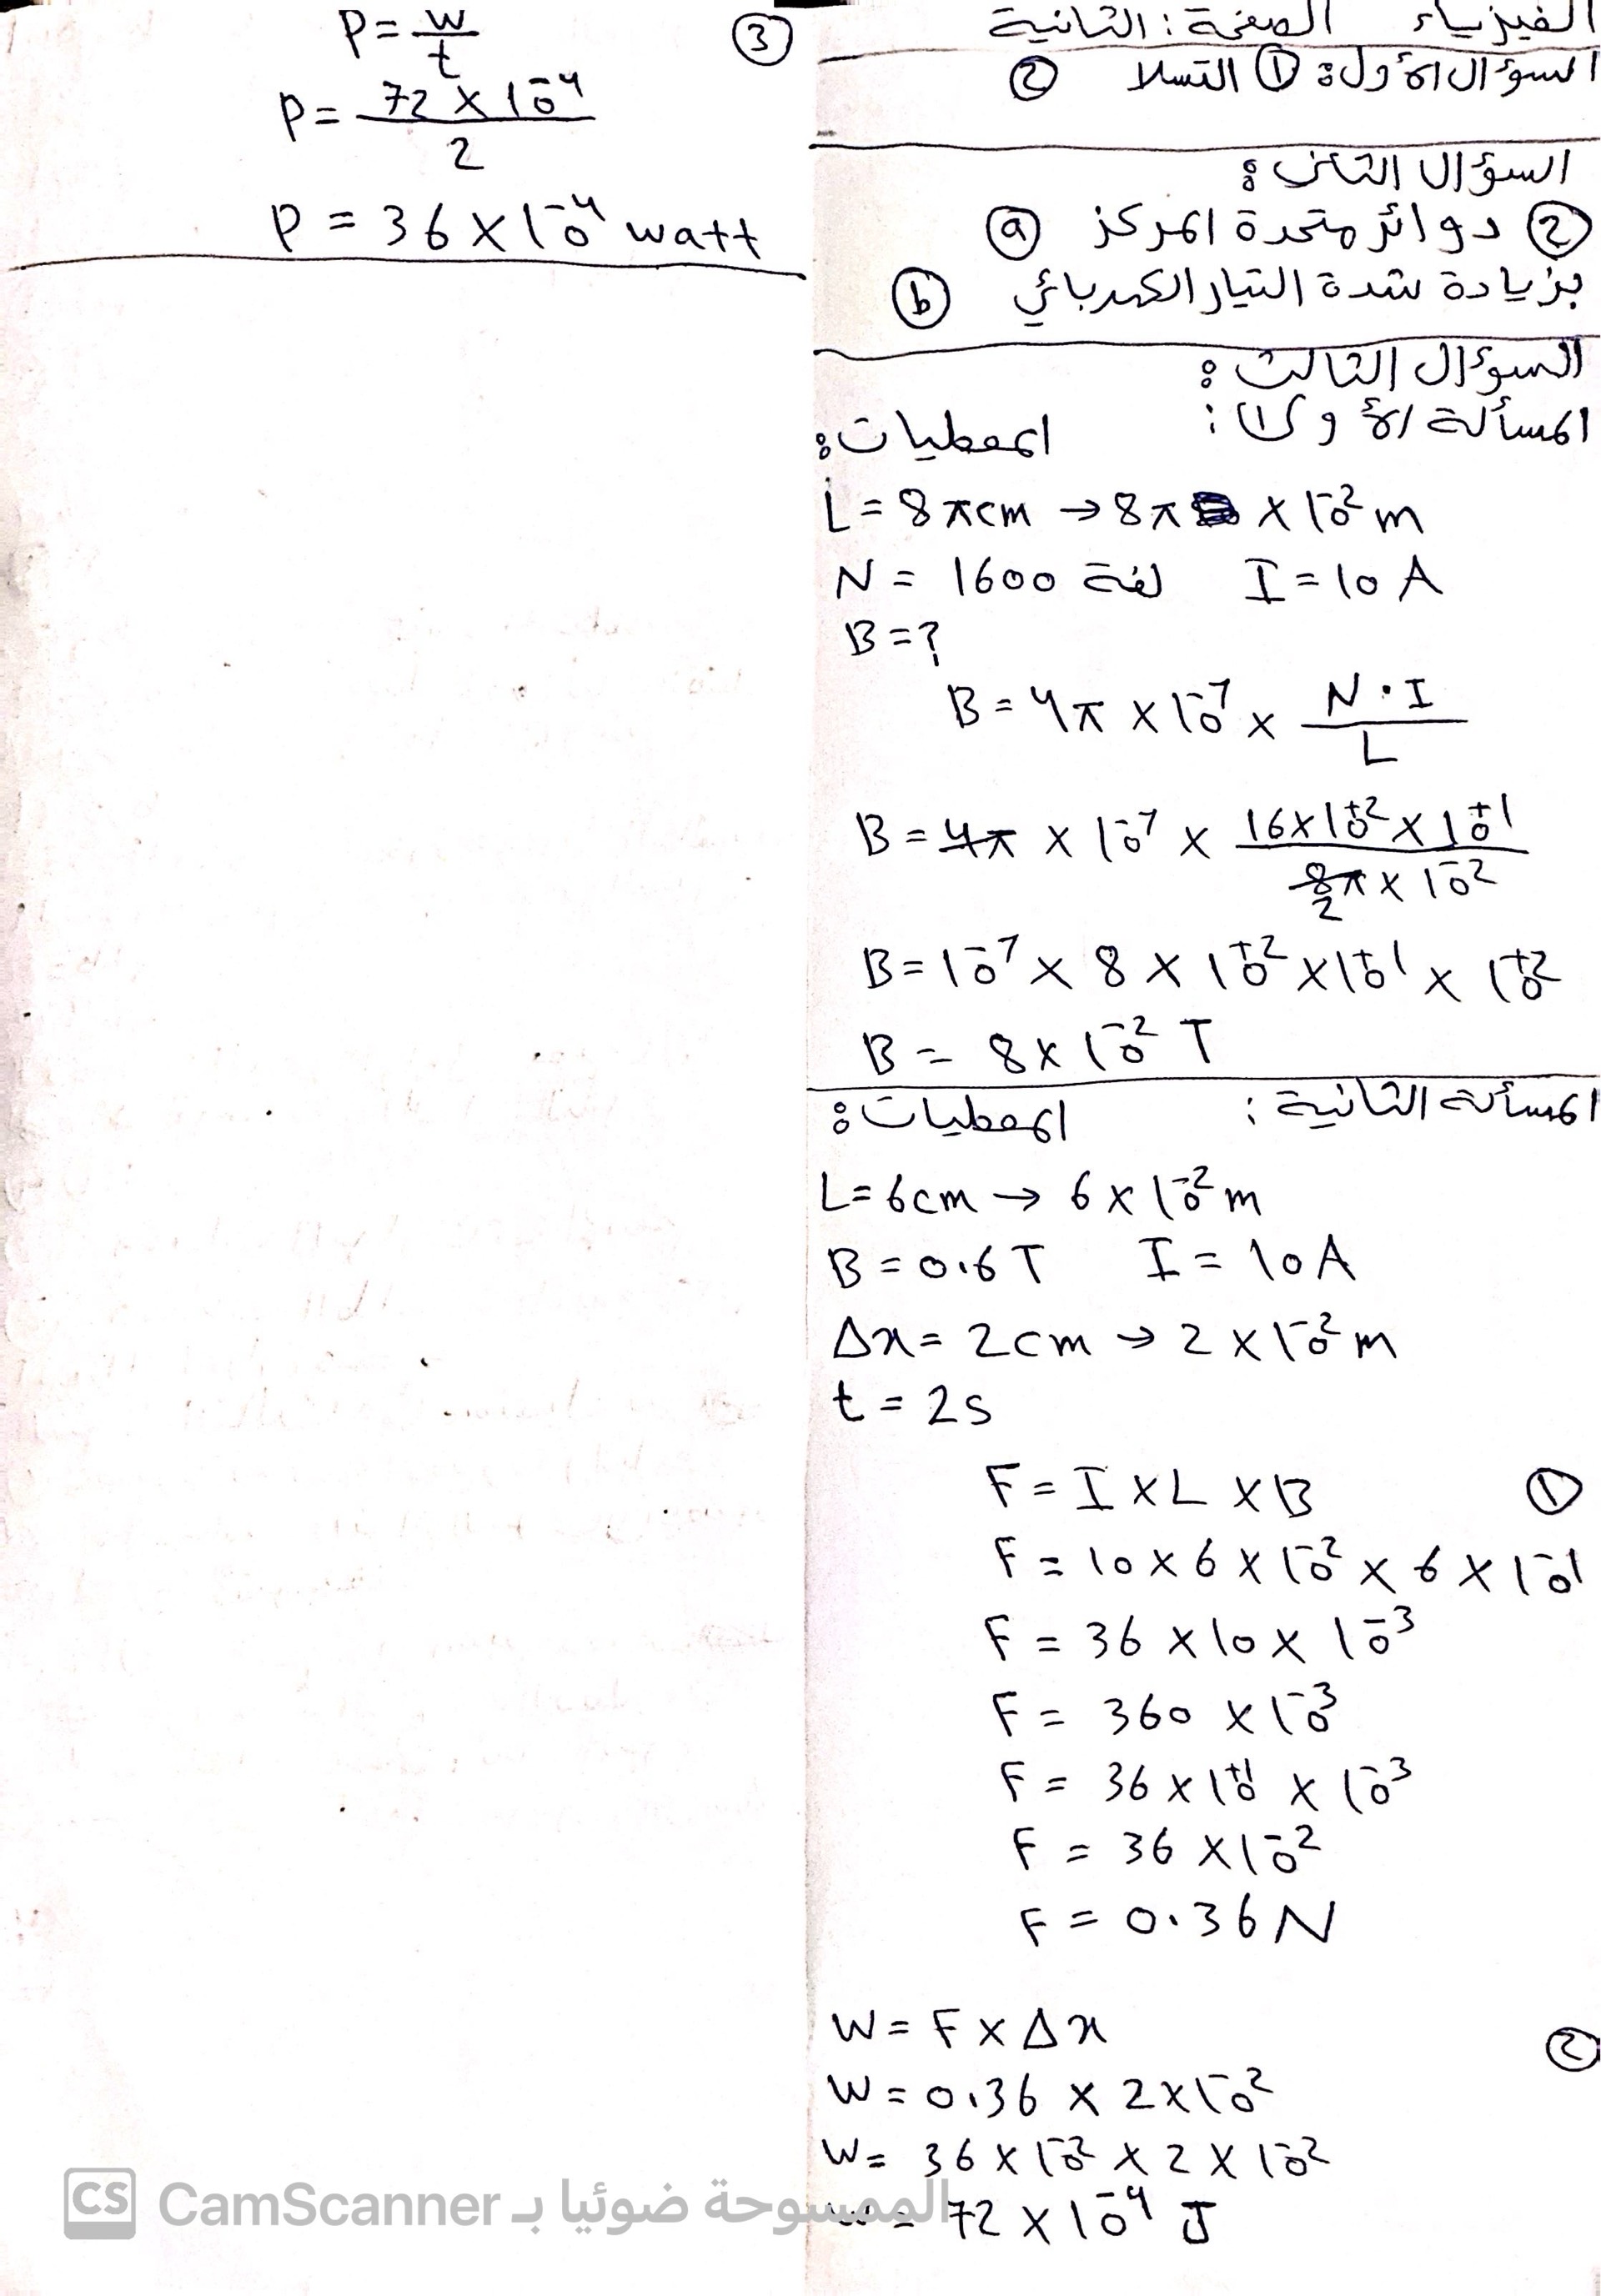 الفيزياء الصفحة: الثانية
السؤال الأول: ① التسلا ②
السؤال الثاني:
② دوائر متحدة المركز ⓐ
بزيادة شدة التيار الكهربائي ⓑ
السؤال الثالث:
المسألة الأولى: المعطيات:
L = 8πcm → 8π × 10⁻² m
N = 1600 لفة I = 10 A
B = ?
B = 4π × 10⁻⁷ × N · I / L
B = 4π × 10⁻⁷ × 16×10⁺² × 10⁺¹ / 8π × 10⁻²
2
B = 10⁻⁷ × 8 × 10⁺² × 10⁺¹ × 10⁺²
B = 8 × 10⁻² T
المسألة الثانية: المعطيات:
L = 6cm → 6 × 10⁻² m
B = 0.6 T I = 10 A
Δx = 2cm → 2 × 10⁻² m
t = 2s
① F = I × L × B
F = 10 × 6 × 10⁻² × 6 × 10⁻¹
F = 36 × 10 × 10⁻³
F = 360 × 10⁻³
F = 36 × 10⁺¹ × 10⁻³
F = 36 × 10⁻²
F = 0.36 N
② W = F × Δx
W = 0.36 × 2 × 10⁻²
W = 36 × 10⁻² × 2 × 10⁻²
W = 72 × 10⁻⁴ J
③ P = W / t
P = 72 × 10⁻⁴ / 2
P = 36 × 10⁻⁴ watt
CS الممسوحة ضوئيا بـ CamScanner